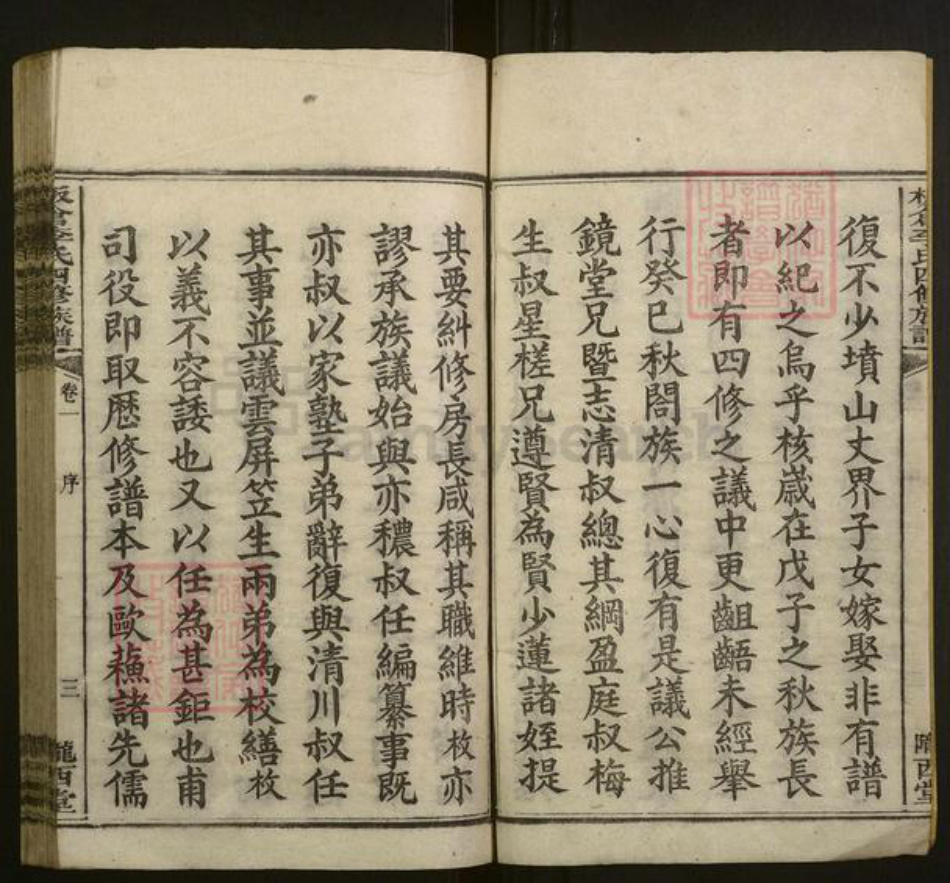 復不少墳山丈界子女嫁娶非有譜
以紀之烏乎核歲在戊子之秋族長
者即有四修之議中更齟齬未經舉
行癸巳秋閤族一心復有是議公推
鏡堂兄暨志清叔總其綱盈庭叔梅
生叔星槎兄遵賢為賢少蓮諸姪提
其要糾修房長咸稱其職維時枚亦
謬承族議始與亦穠叔任編纂事既
亦叔以家塾子弟辭復與清川叔任
其事並議雲屏笠生兩弟為校繕枚
以義不容諉也又以任為甚鉅也甫
司役即取歷修譜本及歐蘇諸先儒
板倉李氏四修族譜
卷一
序
三
隴西堂
FamilySearch